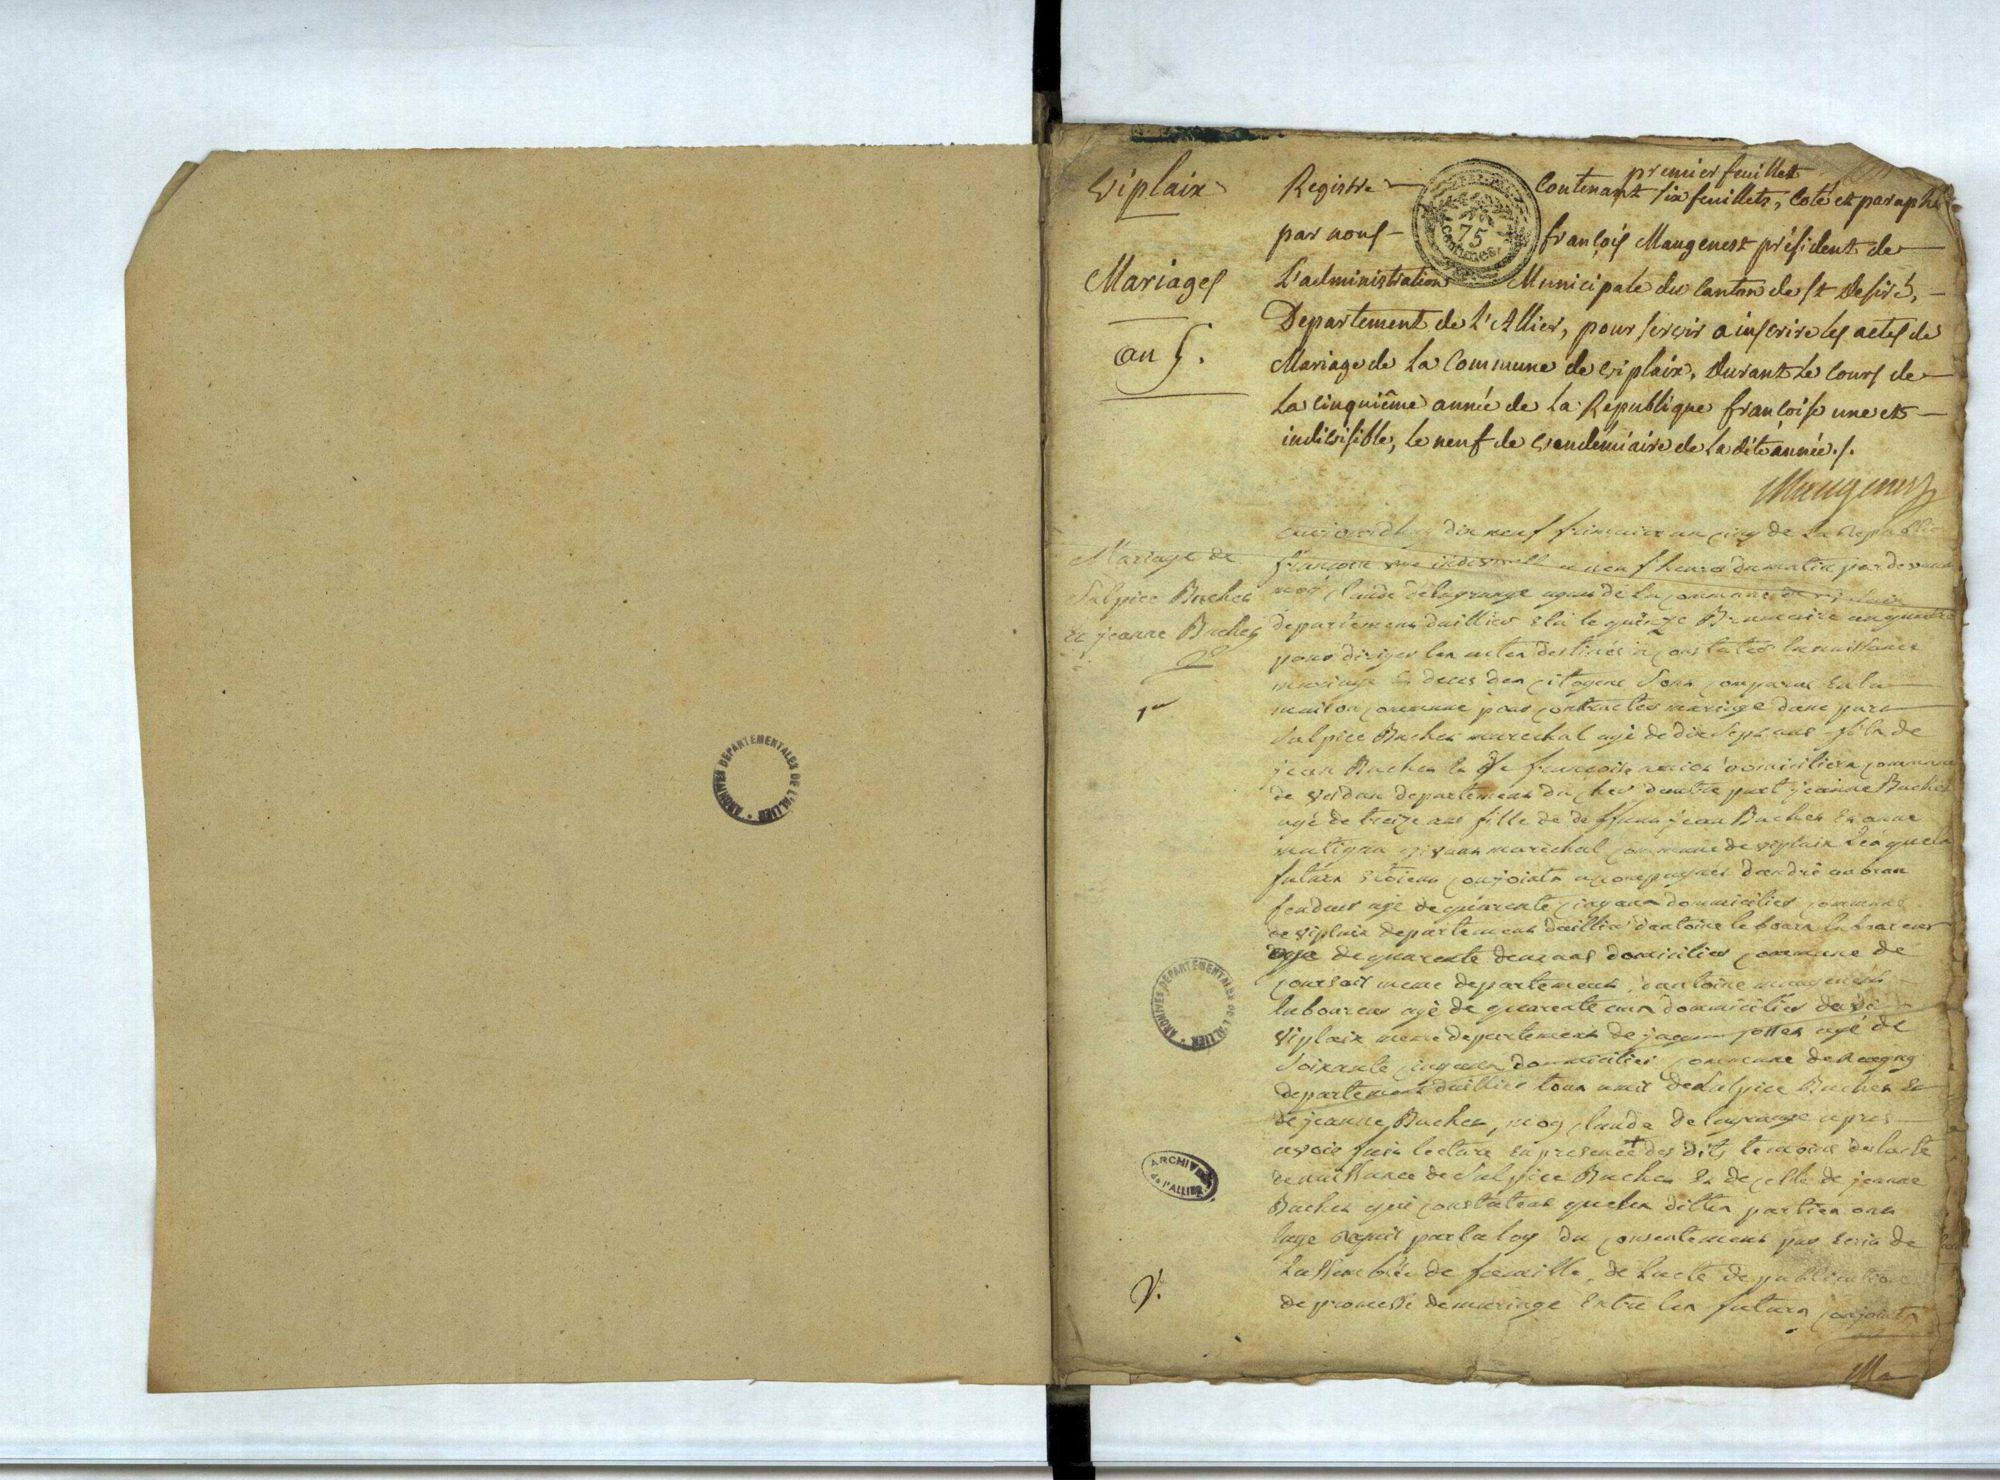 Viplaix
Mariages
an 5.
premier feuillet
Registre contenant six feuillets, coté et paraphé
par nous françois Maugenest président de
L'administration Municipale du Canton de St Desiré,
Departement de L'Allier, pour servir a inscrire les actes de
Mariage de La Commune de Viplaix, durant Le Cours de
La cinquiême année de La République françoise une et
indivisible, Le neuf de vendémiaire de La dite année./.
Maugenest
75
centimes
Mariage de
Sulpice Buchet
Et jeanne Buchet
1er
aujourdhuy dix neuf frimaire an cinq de La Republi
francoise une indivisible a neuf heures du matin par devant
moy Claude delagrange agent de La commune de viplaix
departement dallier Elu le quinze Brumaire an quatre
pour diriger les actes destinés a constater la naissance
mariage Et deces des citoyens Sont comparus En la
maison commune pour contracter mariage dune part
Sulpice Buchet marechal agé de dix Sept ans fils de
jean Buchet Et de francoise domiciliers commune
de departement du cher dautre part jeanne Buchet
agé de treize ans fille de deffunt jean Buchet Et anne
vivant marechal commune de viplaix Lesquels
futurs conjoints accompagnés dandré
fendeur agé de quarente cinq ans domicilier commune
de viplaix departement dallier dantoine laboureur
agé de quarente deux ans domicilier commune de
coursait meme departement, dantoine maugenest
laboureur agé de quarente ans domicilier de vi
viplaix meme departement de agé de
Soixante cinq ans domicilier commune de
departement dallier tous amis de Sulpice Buchet Et
de jeanne Buchet, moy claude de lagrange apres
avoir fait lecture En presence des dits temoins de lacte
de naissance de Sulpice Buchet Et de celle de jeanne
Buchet qui constatent que les dittes parties ont
lage requis par la loy du consentement par Ecrit de
Lassemblée de famille, de Lacte de publication
de promesse de mariage Entre les futurs conjoints
V.
Ma
ARCHIVES DEPARTEMENTALES DE L'ALLIER
ARCHIVES DEPARTEMENTALES DE L'ALLIER
ARCHIVES
de l'ALLIER